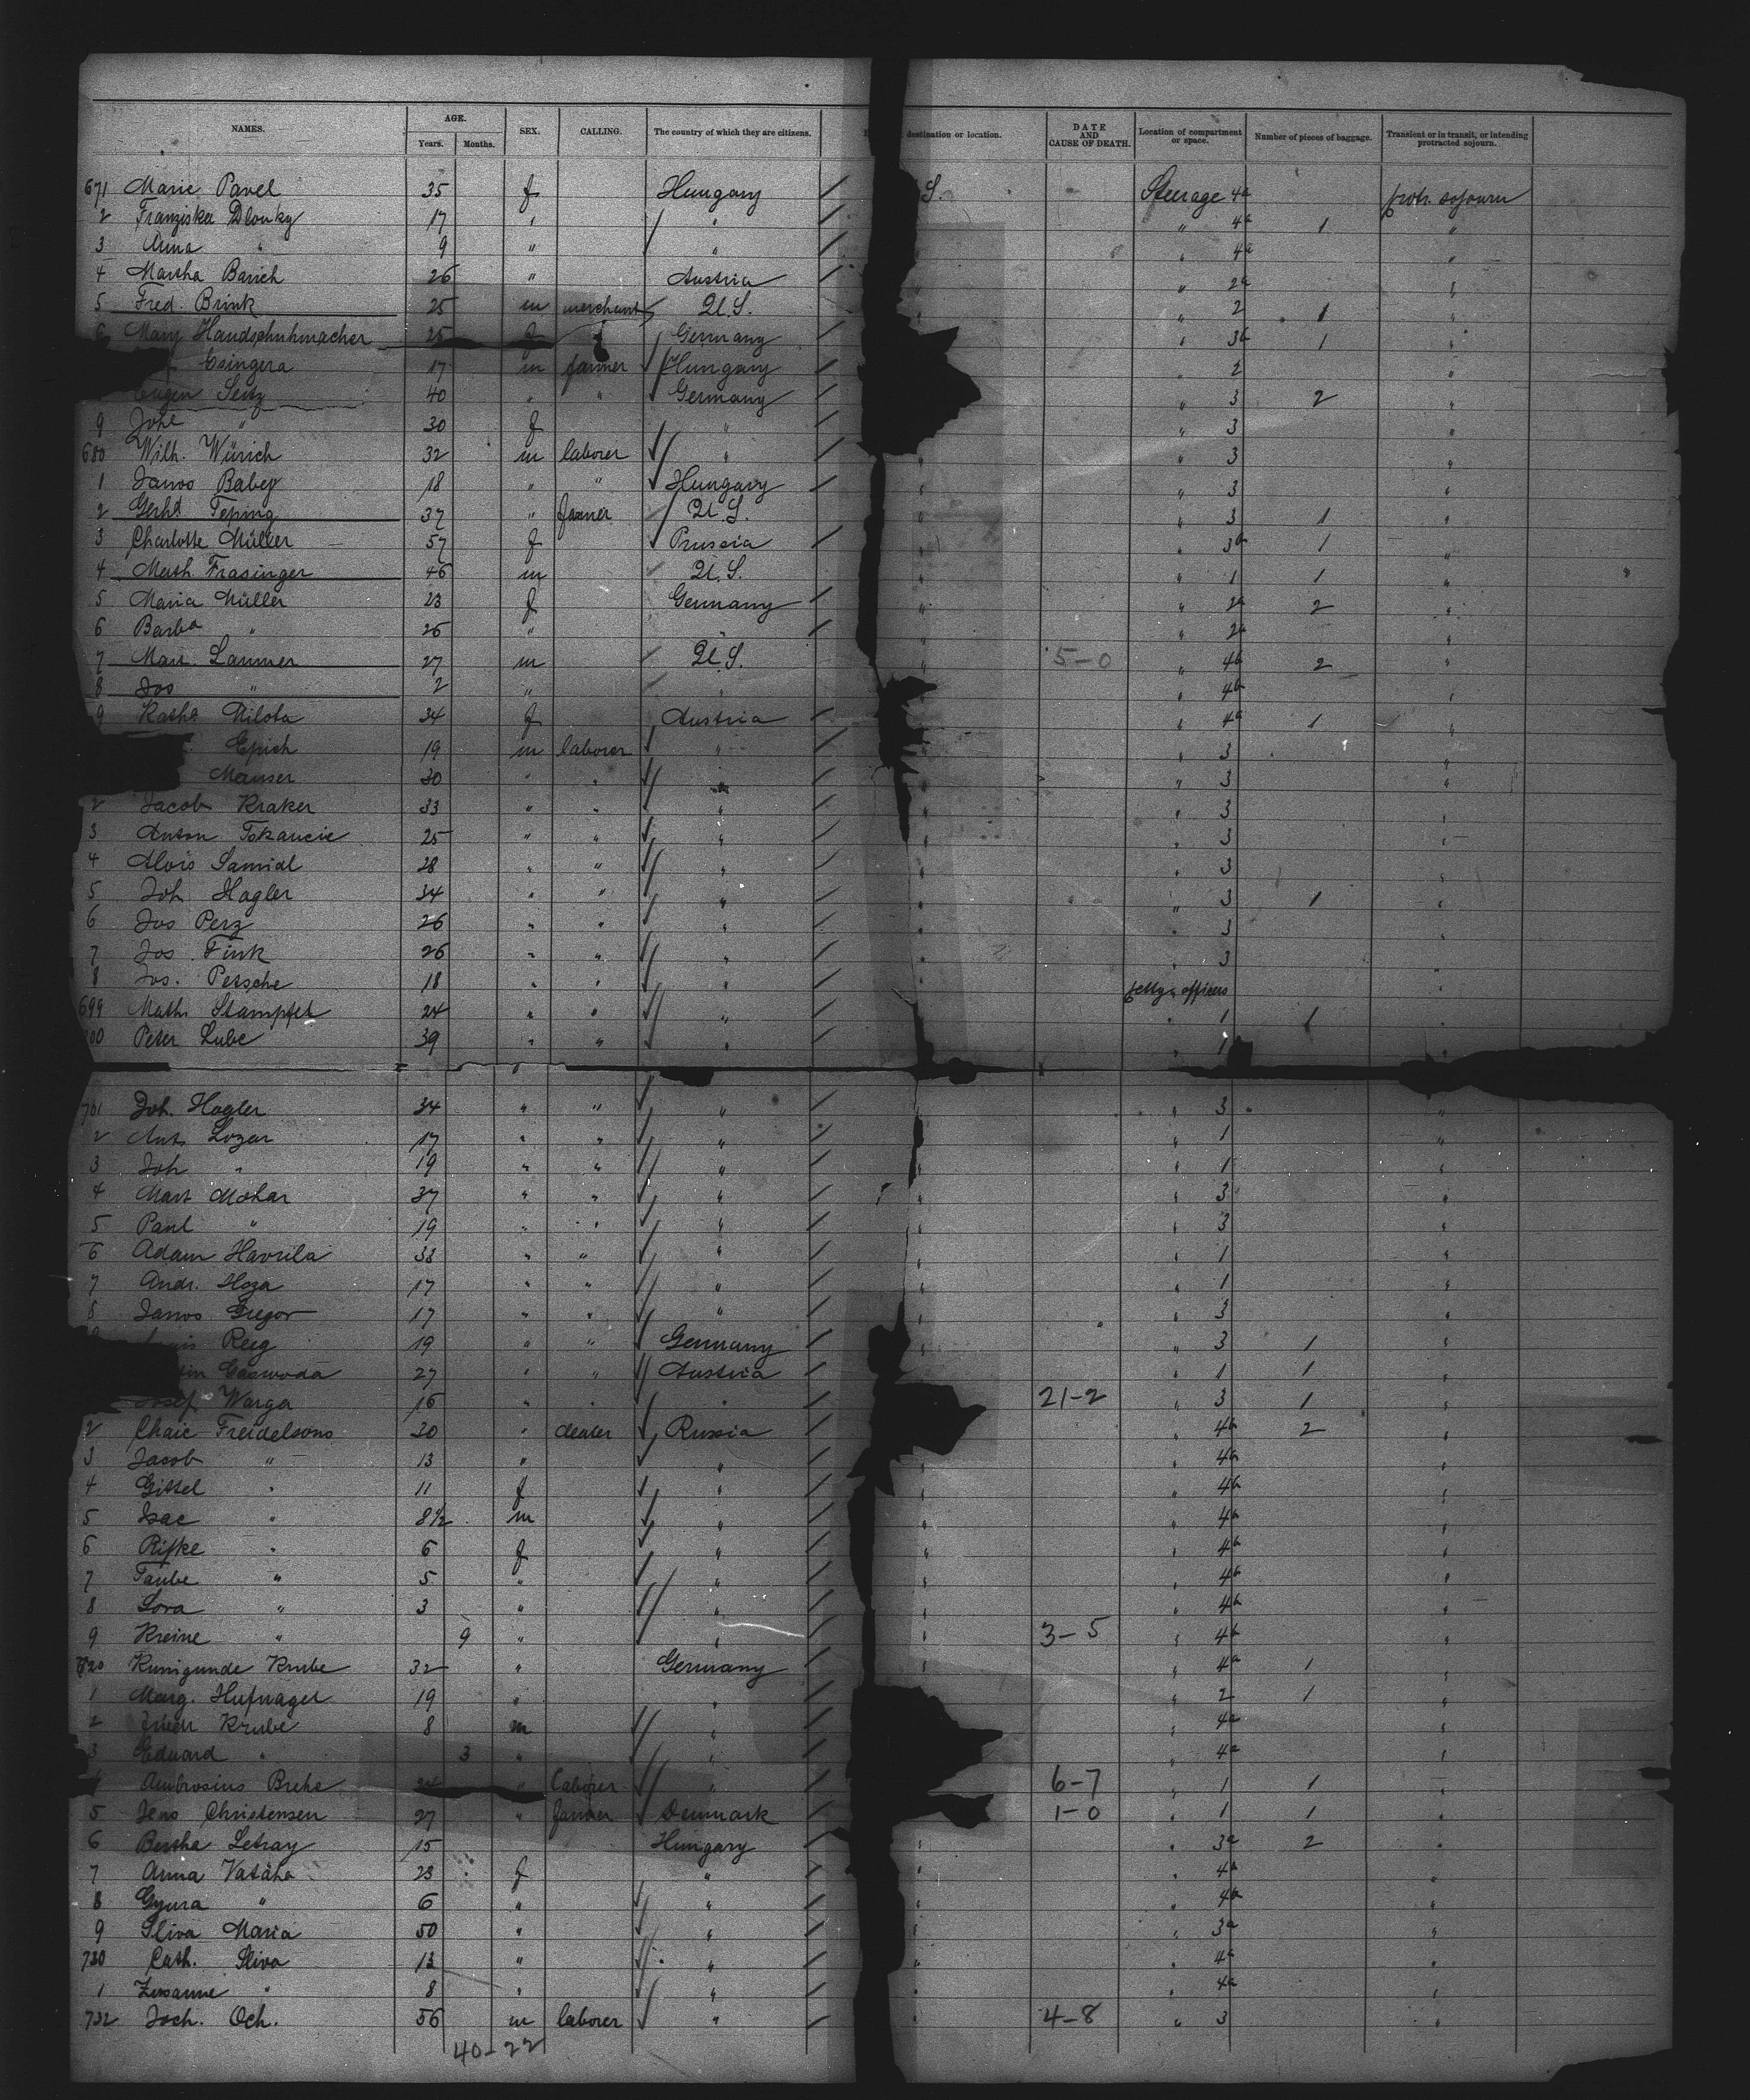 NAMES. AGE. Years. Months. SEX. CALLING. The country of which they are citizens. destination or location. DATE AND CAUSE OF DEATH. Location of compartment or space. Number of pieces of baggage. Transient or in transit, or intending protracted sojourn.
671 Marie Pavel 35 f Hungary S. Steerage 4a protr. sojourn
2 Franziska Dlouky 17 " " " 4a 1 "
3 Anna " 9 " " " 4a "
4 Martha Barich 26 " Austria " " 2a "
5 Fred. Brink 25 m merchant U.S. " 2 1 "
6 Mary Handschuhmacher 25 f Germany " 3b 1 "
Csingera 17 m farmer Hungary " 2 "
Eugen Seitz 40 " " Germany " 3 2 "
9 Johe " 30 f " " 3 "
680 Wilh. Würich 32 m laborer " " " 3 "
1 Janos Babey 18 " " Hungary " " 3 "
2 Gerhd Teping 37 " farmer U.S. " " 3 1 "
3 Charlotte Müller 57 f Prussia " " 3b 1 "
4 Math Frasinger 46 m U.S. " " 1 1 "
5 Maria Müller 23 f Germany " " 2a 2 "
6 Barba " 26 " " " " 2a "
7 Mart. Lammer 27 m U.S. " 5-0 " 4b 2 "
8 Jos " 2 " " " 4b "
9 Katha Milota 34 f Austria " " 4a 1 "
Epich 19 m laborer " " " 3 "
Mauser 30 " " " " " 3 "
2 Jacob Kraker 33 " " " " " 3 "
3 Anton Tokaucic 25 " " " " " 3 "
4 Alois Samial 28 " " " " " 3 "
5 Joh Hogler 34 " " " " " 3 1 "
6 Jos Perz 26 " " " " " 3 "
7 Jos. Fink 26 " " " " " 3 "
8 Jos. Petsche 18 " " " " petty officers "
699 Math. Stampfel 24 " " " " " 1 1 "
700 Peter Lube 39 " " " " 1 "
701 Joh. Hogler 34 " " " " " 3 "
2 Ant. Lozar 17 " " " " " 1 "
3 Joh " 19 " " " " " 1 "
4 Mart Mohar 37 " " " " " 3 "
5 Paul " 19 " " " " " 3 "
6 Adam Havrila 33 " " " " " 1 "
7 Andr. Hoza 17 " " " " " 1 "
8 Janos Gregor 17 " " " " " 3 "
Reeg 19 " " Germany " " 3 1 "
27 " " Austria " 1 1 "
Josef Warga 16 " " " 21-2 " 3 1 "
2 Chaie Freidelsons 30 " dealer Russia " 4b 2 "
3 Jacob " 13 " " " " 4b "
4 Gittel " 11 f " " " 4b "
5 Isac " 8½ m " " " 4b "
6 Rifke " 6 f " " " 4b "
7 Taube " 5 " " " " 4b "
8 Sora " 3 " " " " 4b "
9 Kreine " 9 " " " 3-5 " 4b "
720 Kunigunde Krube 32 " Germany " " 4a 1 "
1 Marg. Hufnagel 19 " " " 2 1 "
2 Friedr Krube 8 m " " 4a "
3 Eduard " 3 " " " 4a "
Ambrosius Brehe 24 " laborer " 6-7 " 1 1 "
5 Jens Christensen 27 " farmer Denmark 1-0 " 1 1 "
6 Bertha Letray 15 Hungary " " 3a 2 "
7 Anna Vataha 23 f " " " 4b "
8 Gyura " 6 " " " " 4b "
9 Sliva Maria 50 " " " " 3a "
730 Cath. Sliva 13 " " " " 4a "
1 Zusanne " 8 " " " " 4a "
732 Joch. Och. 56 m laborer " " 4-8 " 3 "
40-22